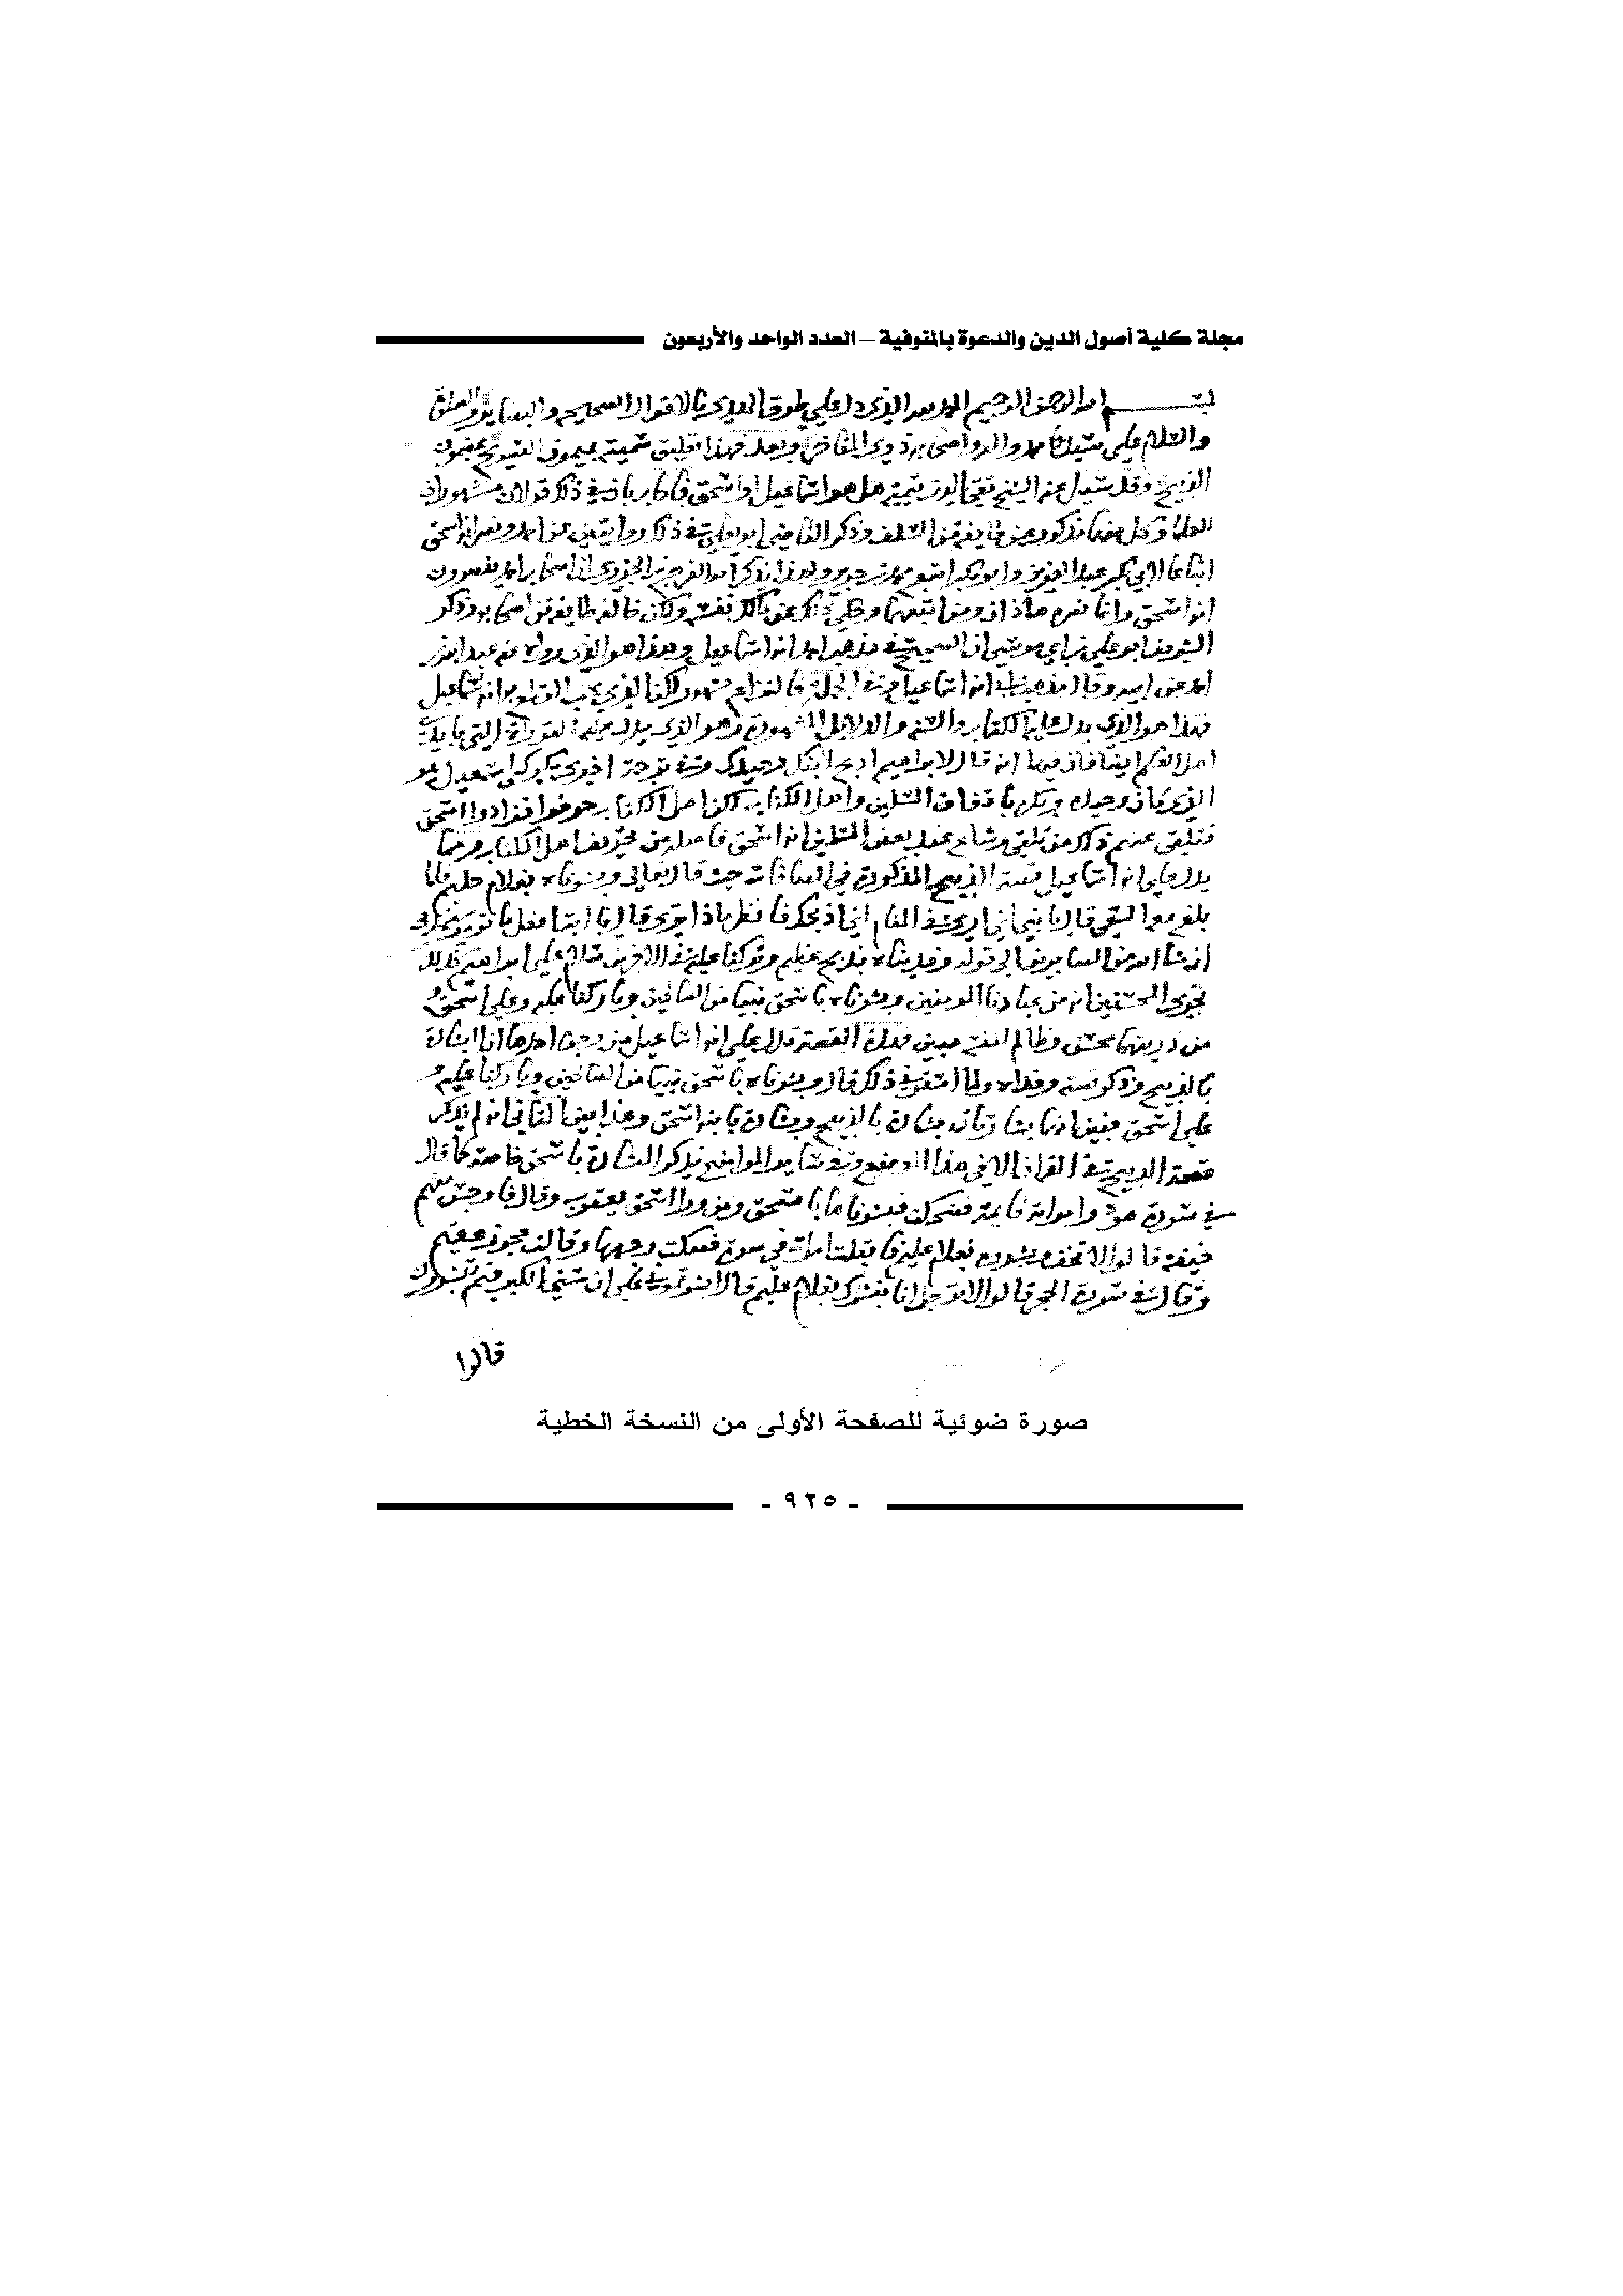 مجلة كلية أصول الدين والدعوة بالمنوفية – العدد الواحد والأربعون
بسم الله الرحمن الرحيم الحمد لله الذي دل علي طرق الهدي بالاقوال الصحيحه
والسلام علي سيدنا محمد واله واصحابه ذوي المفاخر وبعد فهذا تعليق سميته
الذبيح وقد سئل عنه الشيخ تقي الدين بن تيمية هل هو اسماعيل او اسحق فاجاب بان في ذلك قولان مشهوران
للعلما وكل منهما مذكور عن طايفة من السلف وذكر القاضي ابو يعلي في ذلك روايتين عن احمد ونصر انه اسحق
اتباعا لابي بكر عبد العزيز وابو بكر اتبع محمد بن جرير ولهذا يذكر ابو الفرج بن الجوزي ان اصحاب احمد ينصرون
انه اسحق وانما نصره هاذان ومن اتبعهما وحكي ذلك عن مالك نفسه ولكن خالفه طايفة من اصحابه وذكر
الشريف ابو علي بن ابي موسي ان الصحيح في مذهب احمد انه اسماعيل وهذا هو الذي رواه عنه عبد الله بن
احمد عن ابيه وقال مذهب ابي انه اسماعيل وفي الجملة فالنزاع مشهور لكن الذي يجب القطع به انه اسماعيل
فهذا هو الذي يدل عليه الكتاب والسنه والدلايل المشهورة وهو الذي يدل عليه التوراة التي بايدي
اهل الكتاب ايضا فان فيها انه قال لابراهيم اذبح ابنك وحيدك وفي ترجمة اخري بكرك واسمعيل هو
الذي كان وحيده وبكره باتفاق المسلمين واهل الكتاب لكن اهل الكتاب حرفوا فزادوا اسحق
فتلقي عنهم ذلك من تلقي وشاع عند بعض المسلمين انه اسحق فاصله من تحريف اهل الكتاب ومما
يدل علي انه اسماعيل قصة الذبيح المذكورة في الصافات حيث قال تعالي وبشرناه بغلام حليم فلما
بلغ معه السعي قال يا بني اني اري في المنام اني اذبحك فانظر ماذا تري قال يا ابت افعل ما تومر ستجدني
ان شا الله من الصابرين الي قوله وفديناه بذبح عظيم وتركنا عليه في الاخرين سلام علي ابراهيم كذلك
نجزي المحسنين انه من عبادنا المومنين وبشرناه باسحق نبيا من الصالحين وباركنا عليه وعلي اسحق و
من ذريتهما محسن وظالم لنفسه مبين فهذه القصة تدل علي انه اسماعيل من وجوه احدها ان البشارة
بالذبيح وذكر قصته وفداه ولما استوفي ذلك قال وبشرناه باسحق نبيا من الصالحين وباركنا عليه و
علي اسحق فبين انهما بشارتان بشارة بالذبيح وبشارة بابنه اسحق وهذا بين الثاني انه لم يذكر
قصة الذبيح في القران الا في هذا الموضع وفي ساير المواضع يذكر البشارة باسحق خاصة كما قال
في سورة هود وامراته قايمة فضحكت فبشرناها باسحق ومن ورا اسحق يعقوب وقال فاوجس منهم
خيفة قالوا لا تخف وبشروه بغلام عليم فاقبلت امراته في صرة فصكت وجهها وقالت عجوز عقيم
وقال في سورة الحجر قالوا لا توجل انا نبشرك بغلام عليم قال ابشرتموني علي ان مسني الكبر فبم تبشرون
قالوا
صورة ضوئية للصفحة الأولى من النسخة الخطية
- ٩٢٥ -